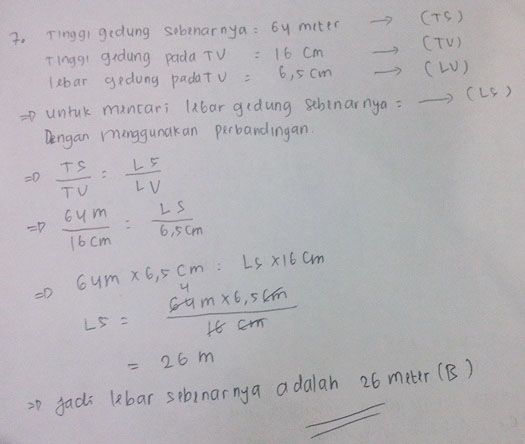 7. Tinggi gedung sebenarnya = 64 meter → (TS)
Tinggi gedung pada TV = 16 cm → (TV)
lebar gedung pada TV = 6,5 cm → (LV)
⇒ untuk mencari lebar gedung sebenarnya = → (LS)
Dengan menggunakan perbandingan.
⇒ TS/TV = LS/LV
⇒ 64 m/16 cm = LS/6,5 cm
⇒ 64 m x 6,5 cm = LS x 16 cm
4
LS = 64 m x 6,5 cm/16 cm
= 26 m
⇒ jadi lebar sebenarnya adalah 26 meter (B)